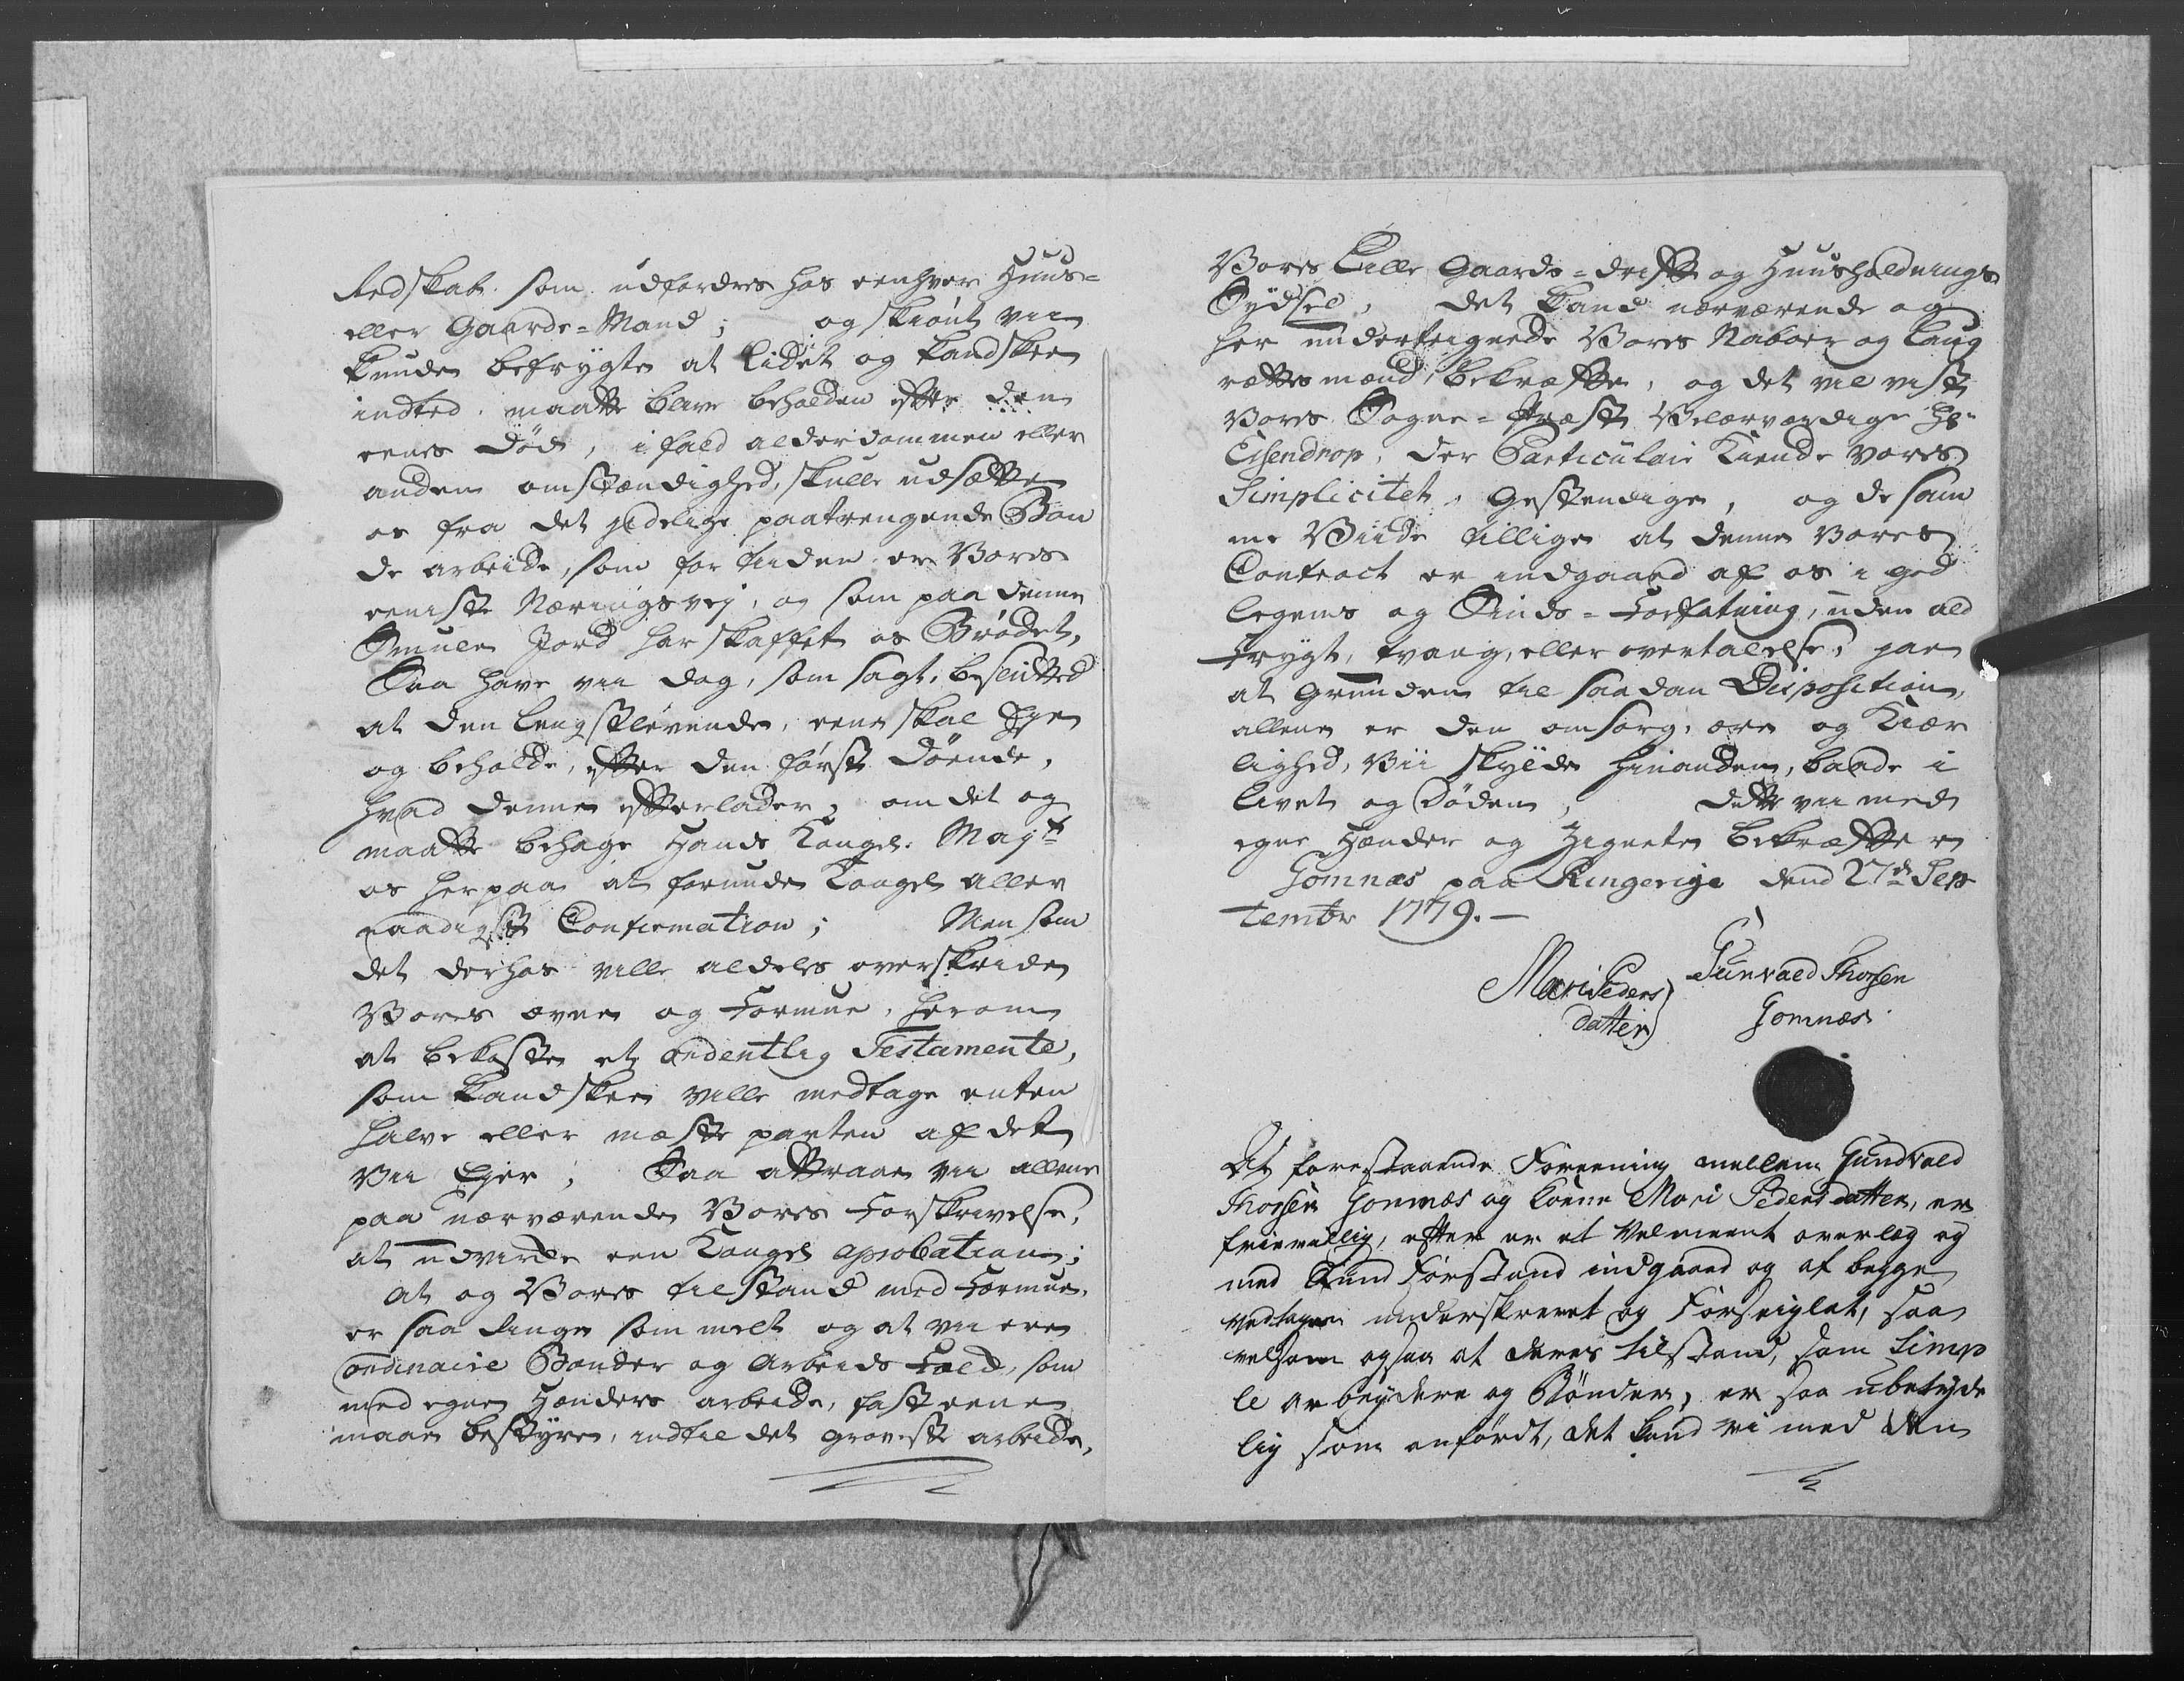 Redskab som udfordres hos eenhver Huus=
eller Gaards=Mand; og skiönt vii
kunde befrygte at lidet og kandskee
indted maatte blive beholden efter den
eenes Död, ifald alderdommen eller
anden omstændighed, skulle udsætte
os fra det idelige paatrengende Bon
de arbeide, som for tiden er Vores
eeniste Næringsvej, og som paa denne
Smule Jord har skaffet os Brödet,
Saa have vii dog, som sagt, beslutted
at den lengstlevende, eene skal Eye
og beholde, efter den först Döende,
hvad denne efterlader, om det og
maatte behage Hands Kongel. Mayt
os herpaa at forunde Kongel aller
naadigst Confirmation; Men som
det derhos ville aldeles overskride
Vores evne og Formue, herom
at bekoste et ordentlig Testamente,
som kandskee ville medtage enten
halve eller mæste parten af det
Vii Ejer; Saa attraae vii allene
paa nærværende Vores Forskrivelse,
at udvirke een Kongel aprobation;
At og Vores tilstand med Formue,
er saa ringe som melt og at vii ere
ordinaire Bønder og Arbeids Folck, som
med egne Hænders arbeide, fast eene
maae bestyre, indtil det groveste arbeide,
Vores Lille Gaards=drifft og Huusholdnings
Sydsel, det kand nærværende og
her underteignede Vores Naboer og Laug
rættes mænd, bekræfte, og det vil vist
Vores Sogne=Præst Velærværdige Hr
Eilsendrop, der Particulair Kiende vores
Simplicitet, Gestendige, og de sam
me Viide tillige at denne Vores
Contract er indgaaed af os i god
legems og Sinds=Forfatning, uden ald
Frygt, tvang, eller overtalelse,
at Grunden til saadan Disposition,
allene er den omsorg, ære og Kiær
lighed, Vii skylde hinanden, baade i
livet og Döden, dette vii med
egne Hænder og Zigneter bekræfter
Gomnæs paa Ringerige dend 27de Sep
tembr 1779.—
Mari Peders
datter
Gunvald Thorsen
Gomnæs.
At forestaaende Foreening mellem Gundvald
Thorsen Gomnæs og Kone Mari Pedersdatter, er
frievillig, efter er et Velmeent overlæg og
med Sund Forstand indgaaed og af begge
vedtagen underskrevet og Forseiglet, saa
velsom ogsaa at deres tilstand, som Simp
le arbeydere og Bönder, er saa ubetyde
lig som anfördt, det kand vi med den